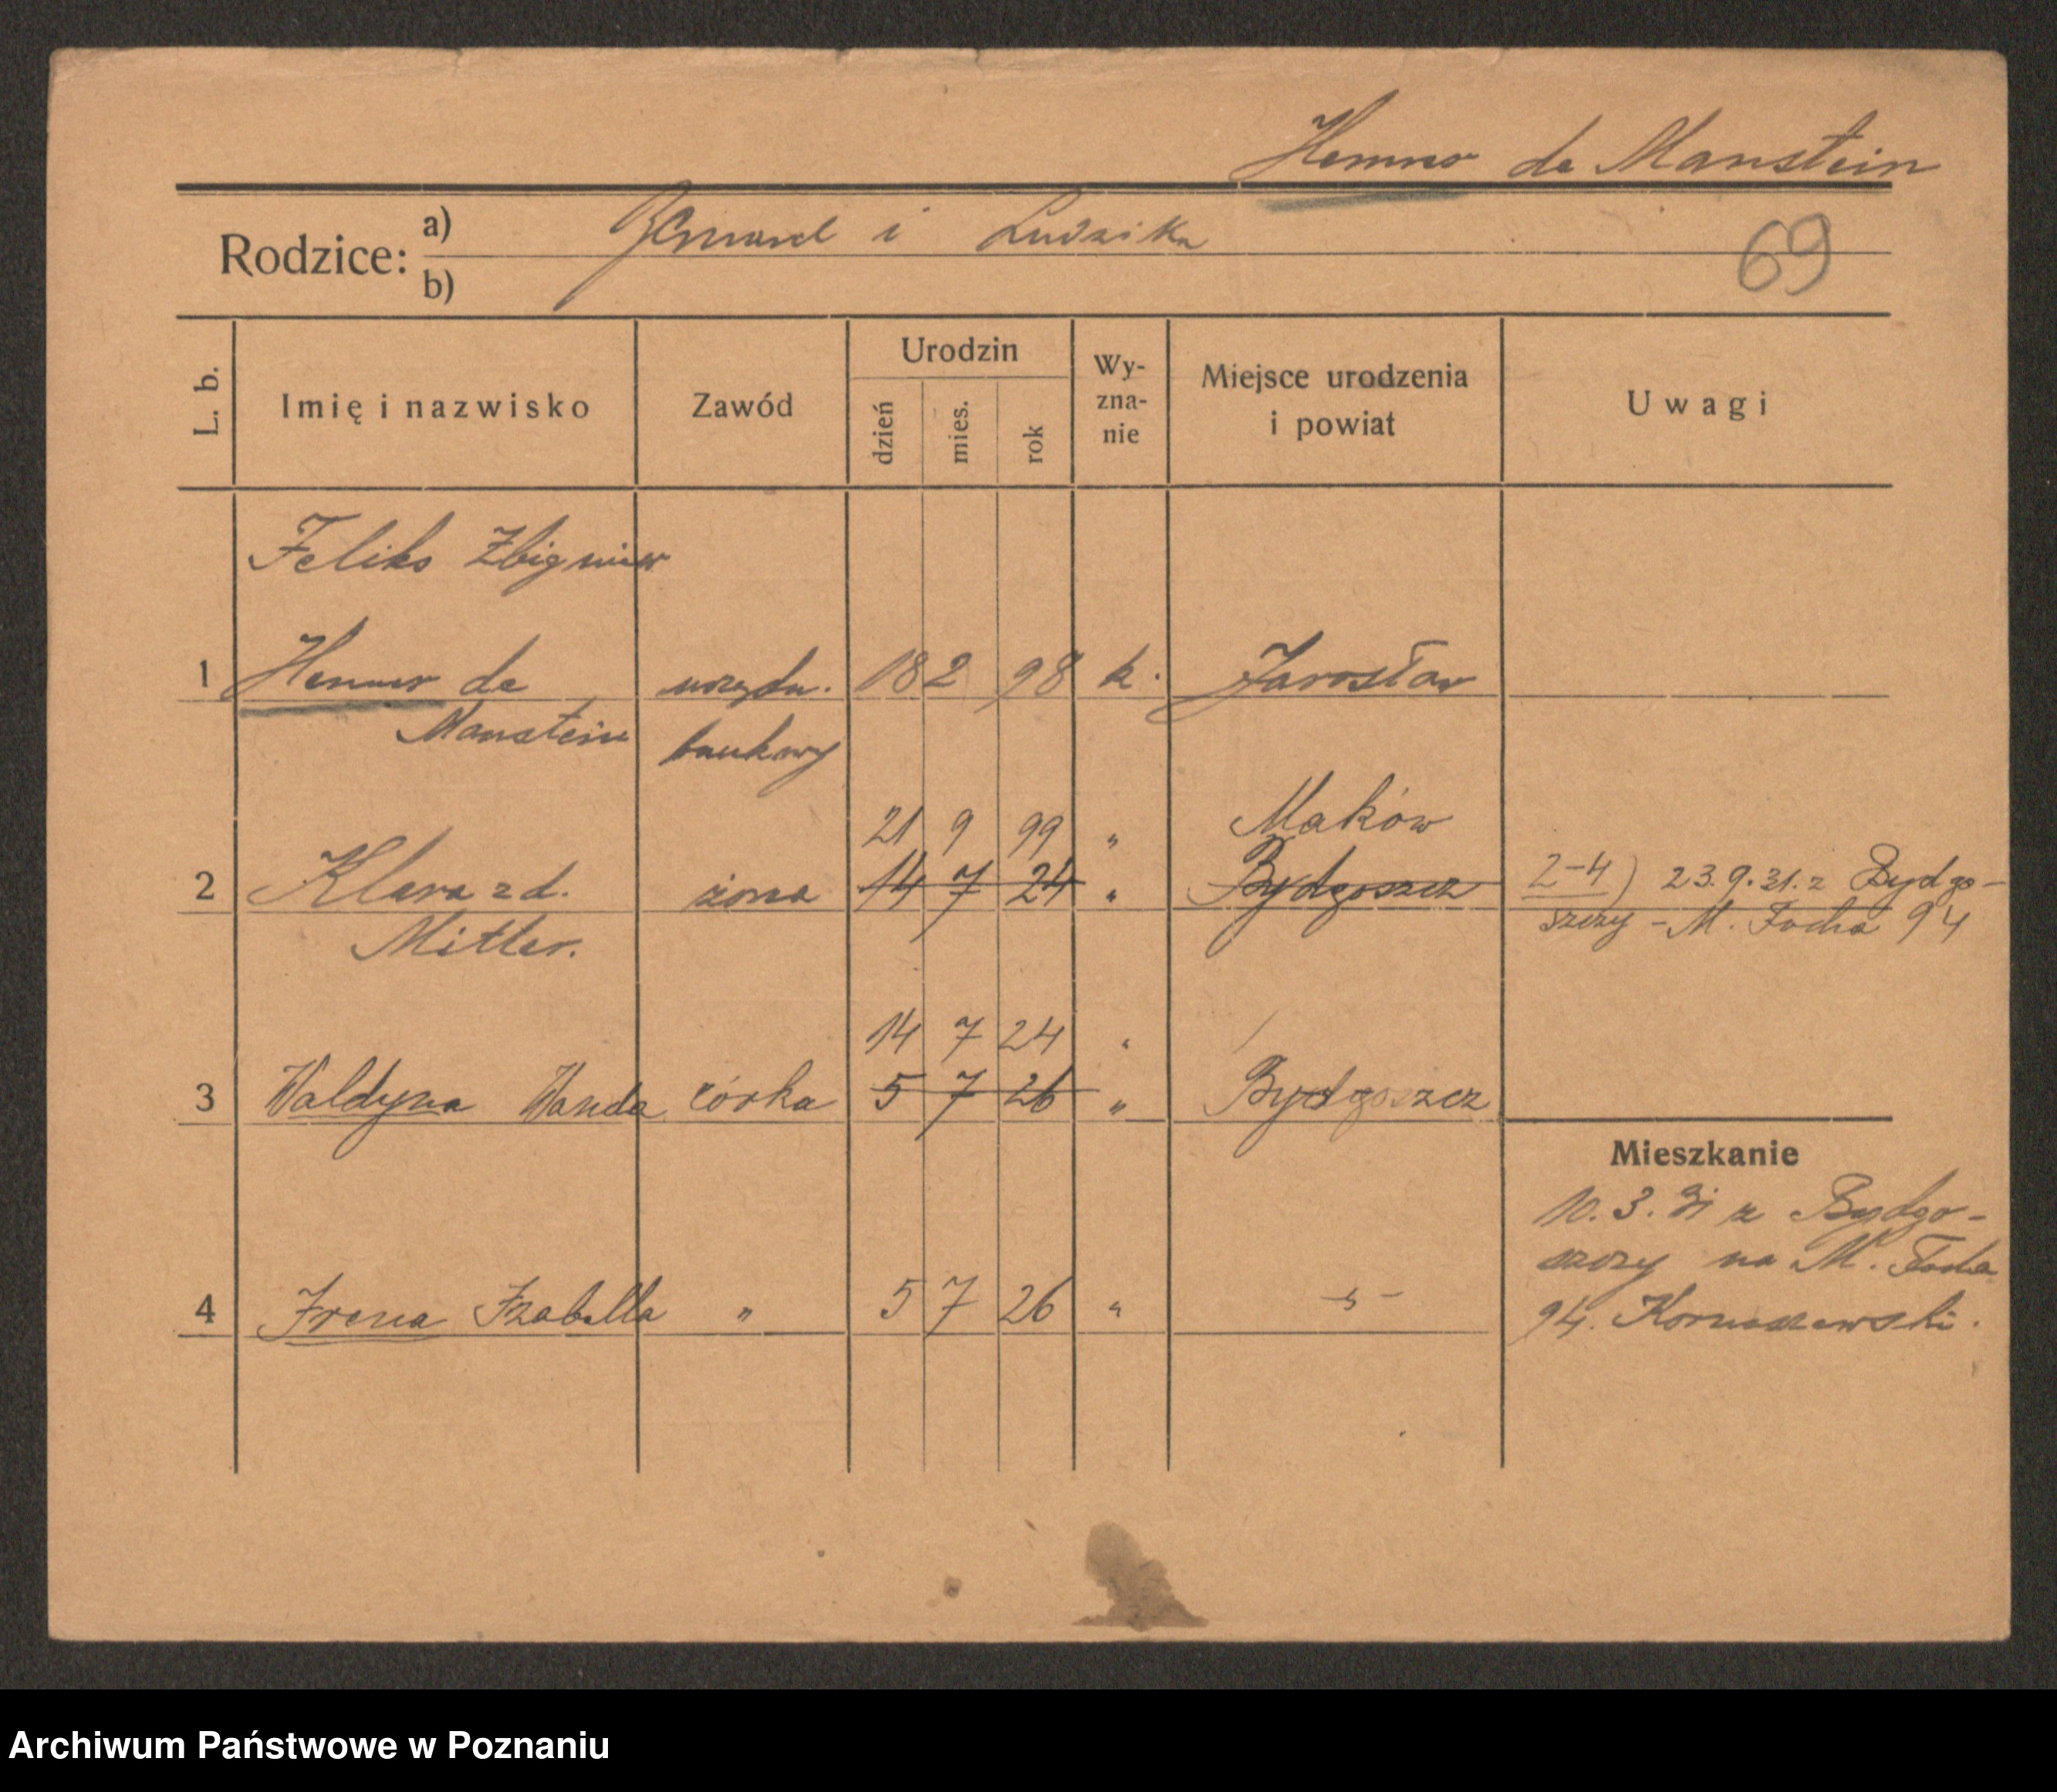 Hemner de Manstein
Rodzice: a) Bernard i Ludwika
b)
69
L. b.
Imię i nazwisko
Zawód
Urodzin
dzień
mies.
rok
Wy-
zna-
nie
Miejsce urodzenia
i powiat
Uwagi
Feliks Zbigniew
1 Hemner de urzędn. 18 2 98 k. Jarosław
Manstein bankowy
21 9 99 " Maków
2 Klara z d. żona 14 7 24 " Bydgoszcz 2-4) 23.9.31. z Bydgo-
Mitler. szczy - M. Focha 94
14 7 24 "
3 Waldyna Wanda córka 5 7 26 " Bydgoszcz
Mieszkanie
10. 3. 31 z Bydgo-
szczy na M. Focha
4 Irena Izabella " 5 7 26 " -"-
94.
Archiwum Państwowe w Poznaniu